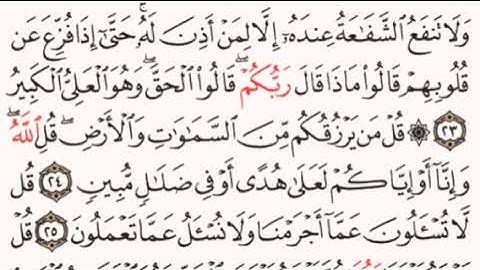 وَلَا تَنفَعُ ٱلشَّفَٰعَةُ عِندَهُۥٓ إِلَّا لِمَنۡ أَذِنَ لَهُۥۚ حَتَّىٰٓ إِذَا فُزِّعَ عَن
قُلُوبِهِمۡ قَالُواْ مَاذَا قَالَ رَبُّكُمۡۖ قَالُواْ ٱلۡحَقَّۖ وَهُوَ ٱلۡعَلِيُّ ٱلۡكَبِيرُ
٢٣ ۞ قُلۡ مَن يَرۡزُقُكُم مِّنَ ٱلسَّمَٰوَٰتِ وَٱلۡأَرۡضِۖ قُلِ ٱللَّهُۖ
وَإِنَّآ أَوۡ إِيَّاكُمۡ لَعَلَىٰ هُدًى أَوۡ فِي ضَلَٰلٖ مُّبِينٖ ٢٤ قُل
لَّا تُسۡـَٔلُونَ عَمَّآ أَجۡرَمۡنَا وَلَا نُسۡـَٔلُ عَمَّا تَعۡمَلُونَ ٢٥ قُلۡ